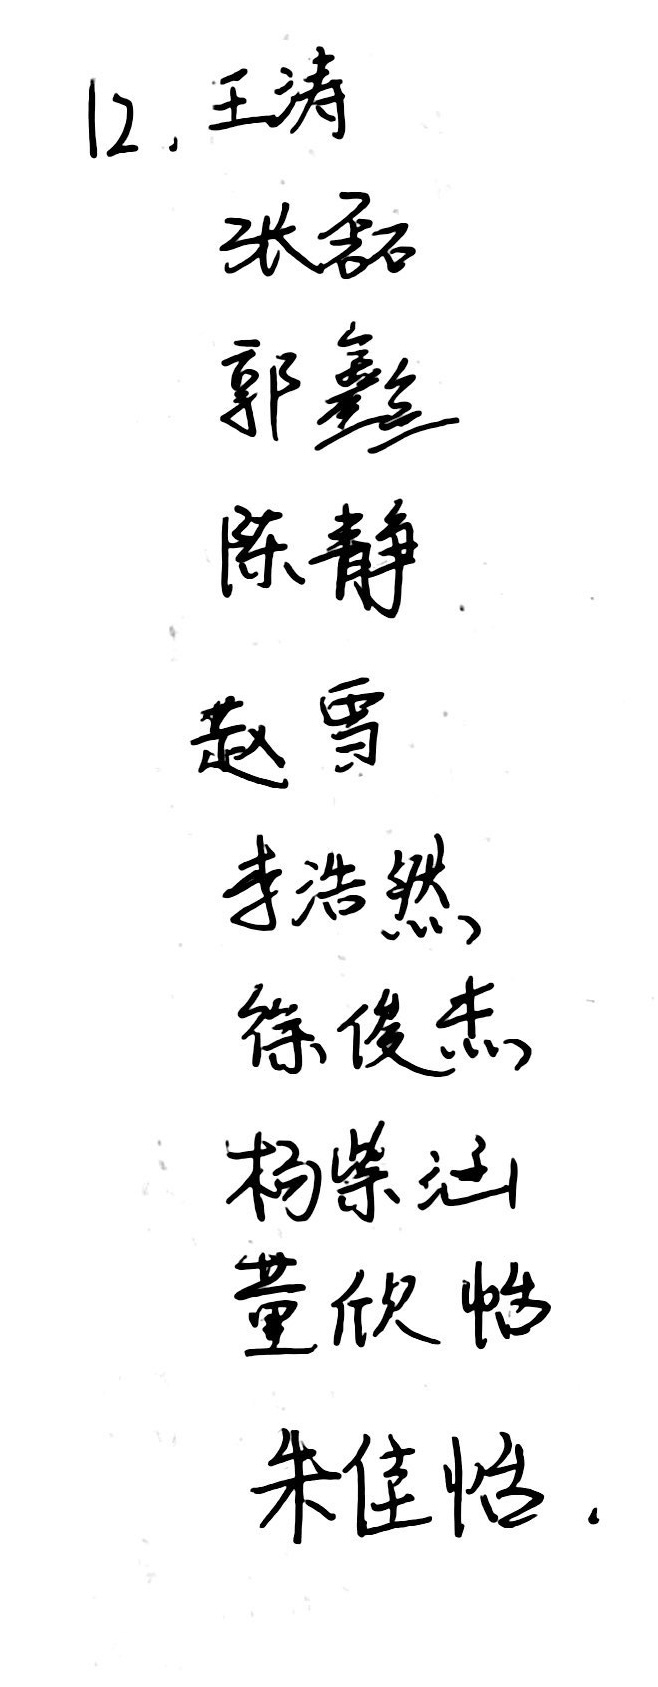 12. 王涛
张磊
郭鑫
陈静
赵雪
李浩然
徐俊杰
杨紫涵
董欣怡
朱佳怡.